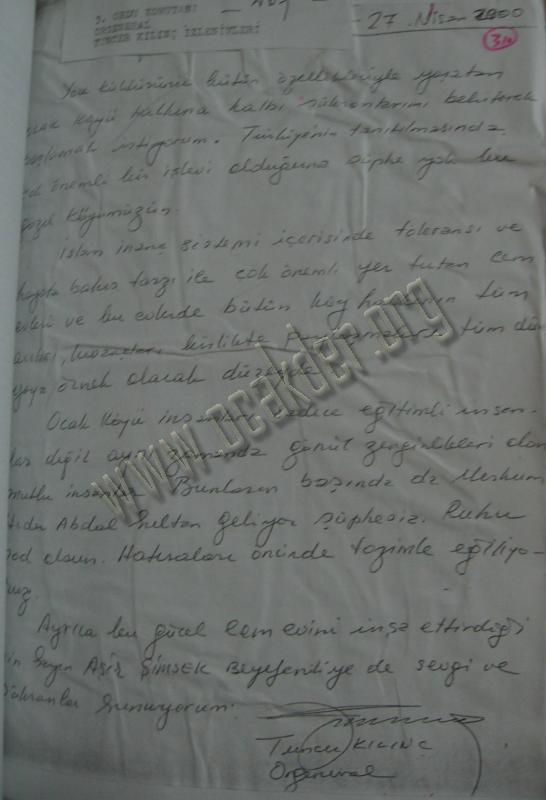 3. ORDU KOMUTANI
ORGENERAL
TUNCER KILINÇ İZLENİMLERİ
27. Nisan 2000
kültürünü bütün özellikleriyle yaşatan
Ocak Köyü halkına kalbi şükranlarımı belirterek
başlamak istiyorum. Türkiye'nin tanıtılmasında
çok önemli bir işlevi olduğuna şüphe yok bu
güzel köyümüzün.
İslam inanç sistemi içerisinde toleransı ve
hayata bakış tarzı ile çok önemli yer tutan cem
evleri ve bu evlerde bütün köy halkının tüm
birlikte paylaşmaları tüm dün
yaya örnek olacak düzeyde.
Ocak Köyü insanları sadece eğitimli insan-
lar değil aynı zamanda gönül zenginlikleri olan
mutlu insanlar. Bunların başında da Merhum
Hıdır Abdal Sultan geliyor şüphesiz. Ruhu
şad olsun. Hatıraları önünde tazimle eğiliyo-
ruz.
Ayrıca bu güzel cem evini inşa ettirdiği
için Sayın Aşir ŞİMŞEK Beyefendiye de sevgi ve
şükranlar sunuyorum.
Tuncer KILINÇ
Orgeneral
www.ocakder.org